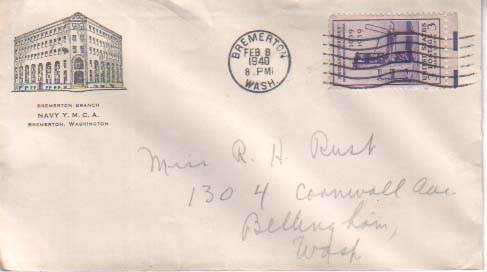 BREMERTON BRANCH
NAVY Y. M. C. A.
BREMERTON, WASHINGTON
BREMERTON
FEB 8
1940
8 PM
WASH.
3
1939
Miss R. H. Rust
1304 Cornwall Ave
Bellingham,
Wash